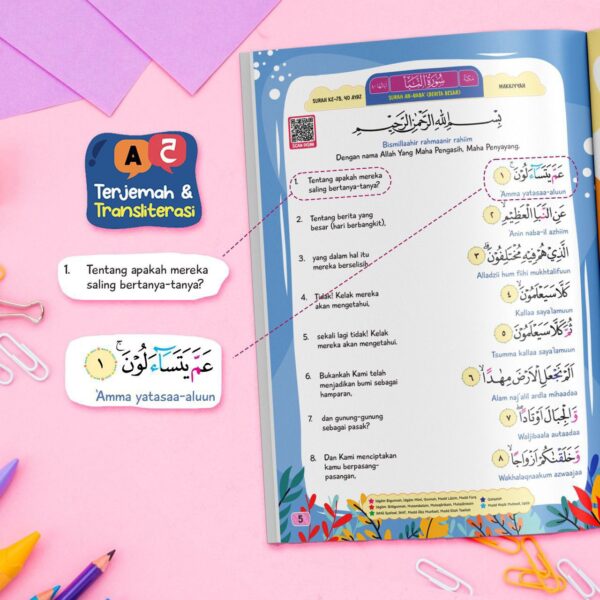 SURAH KE-78, 40 AYAT
سُورَةُ النَّبَإِ
SURAH AN-NABA' (BERITA BESAR)
MAKKIYYAH
SCAN DISINI
بِسْمِ اللَّهِ الرَّحْمَٰنِ الرَّحِيمِ
Bismillaahir rahmaanir rahiim
Dengan nama Allah Yang Maha Pengasih, Maha Penyayang.
A
Terjemah &
Transliterasi
1. Tentang apakah mereka
saling bertanya-tanya?
عَمَّ يَتَسَاۤءَلُوْنَۚ ١
'Amma yatasaa-aluun
1. Tentang apakah mereka
saling bertanya-tanya?
عَمَّ يَتَسَاۤءَلُوْنَۚ ١
'Amma yatasaa-aluun
2. Tentang berita yang
besar (hari berbangkit),
عَنِ النَّبَاِ الْعَظِيْمِۙ ٢
'Anin naba-il azhiim
3. yang dalam hal itu
mereka berselisih.
الَّذِيْ هُمْ فِيْهِ مُخْتَلِفُوْنَۗ ٣
Alladzii hum fiihi mukhtalifuun
4. Tidak! Kelak mereka
akan mengetahui,
كَلَّا سَيَعْلَمُوْنَۙ ٤
Kallaa saya'lamuun
5. sekali lagi tidak! Kelak
mereka akan mengetahui.
ثُمَّ كَلَّا سَيَعْلَمُوْنَ ٥
Tsumma kallaa saya'lamuun
6. Bukankah Kami telah
menjadikan bumi sebagai
hamparan,
اَلَمْ نَجْعَلِ الْاَرْضَ مِهٰدًاۙ ٦
Alam naj'alil ardla mihaadaa
7. dan gunung-gunung
sebagai pasak?
وَّالْجِبَالَ اَوْتَادًاۖ ٧
Waljibaala autaadaa
8. Dan Kami menciptakan
kamu berpasang-
pasangan,
وَّخَلَقْنٰكُمْ اَزْوَاجًاۙ ٨
Wakhalaqnaakum azwaajaa
Qalqalah
5